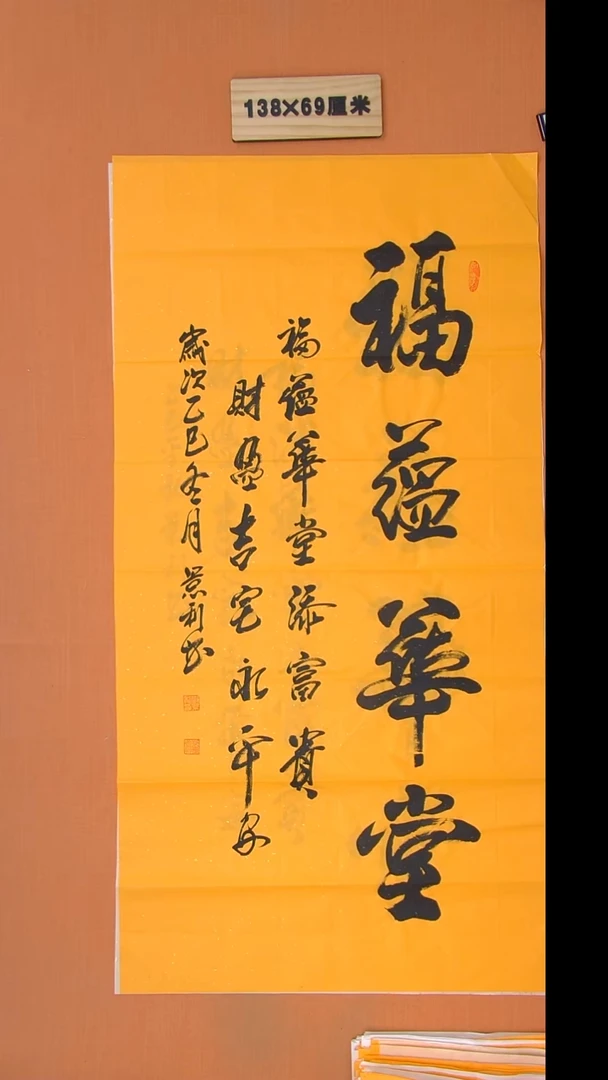 138×69厘米
福蕴華堂
福蕴華堂添富貴
財盈吉宅永平安
歲次乙巳冬月景利书